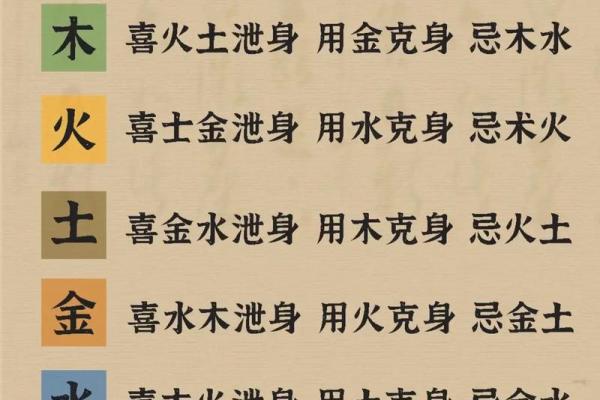 木 喜火土泄身 用金克身 忌木水
火 喜士金泄身 用水克身 忌术火
土 喜金水泄身 用木克身 忌火土
金 喜水木泄身 用火克身 忌金土
水 喜木火泄身 用土克身 忌金水